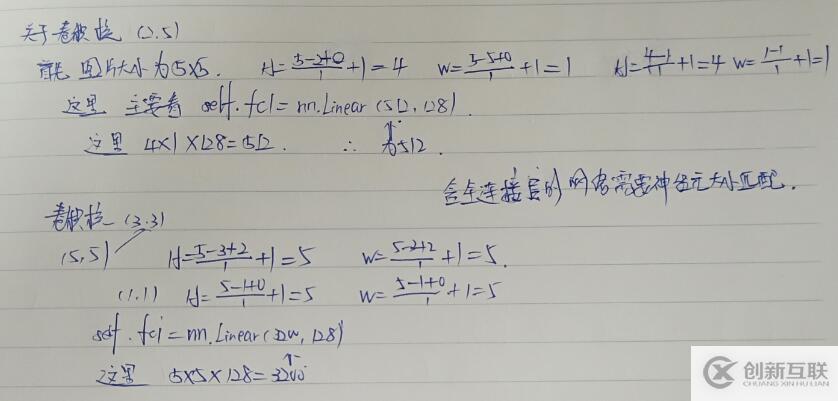 关于卷积核 (2,5)
首先 图片大小为5×5. H=\frac{5-2+0}{1}+1=4 W=\frac{5-5+0}{1}+1=1 H=\frac{4-1}{1}+1=4 W=\frac{1-1}{1}+1=1
这里 主要看 self.fc1=nn.Linear(512,128)
这里 4×1×128=512. ∴ 为512.
含全连接层的网络需要神经元大小匹配.
卷积核 (3.3)
(5,5) H=\frac{5-3+2}{1}+1=5 W=\frac{5-3+2}{1}+1=5.
(1.1) H=\frac{5-1+0}{1}+1=5 W=\frac{5-1+0}{1}+1=5
self.fc1=nn.Linear(3200,128)
这里 5×5×128=3200
创新互联
CHUANG XIN HU LIAN